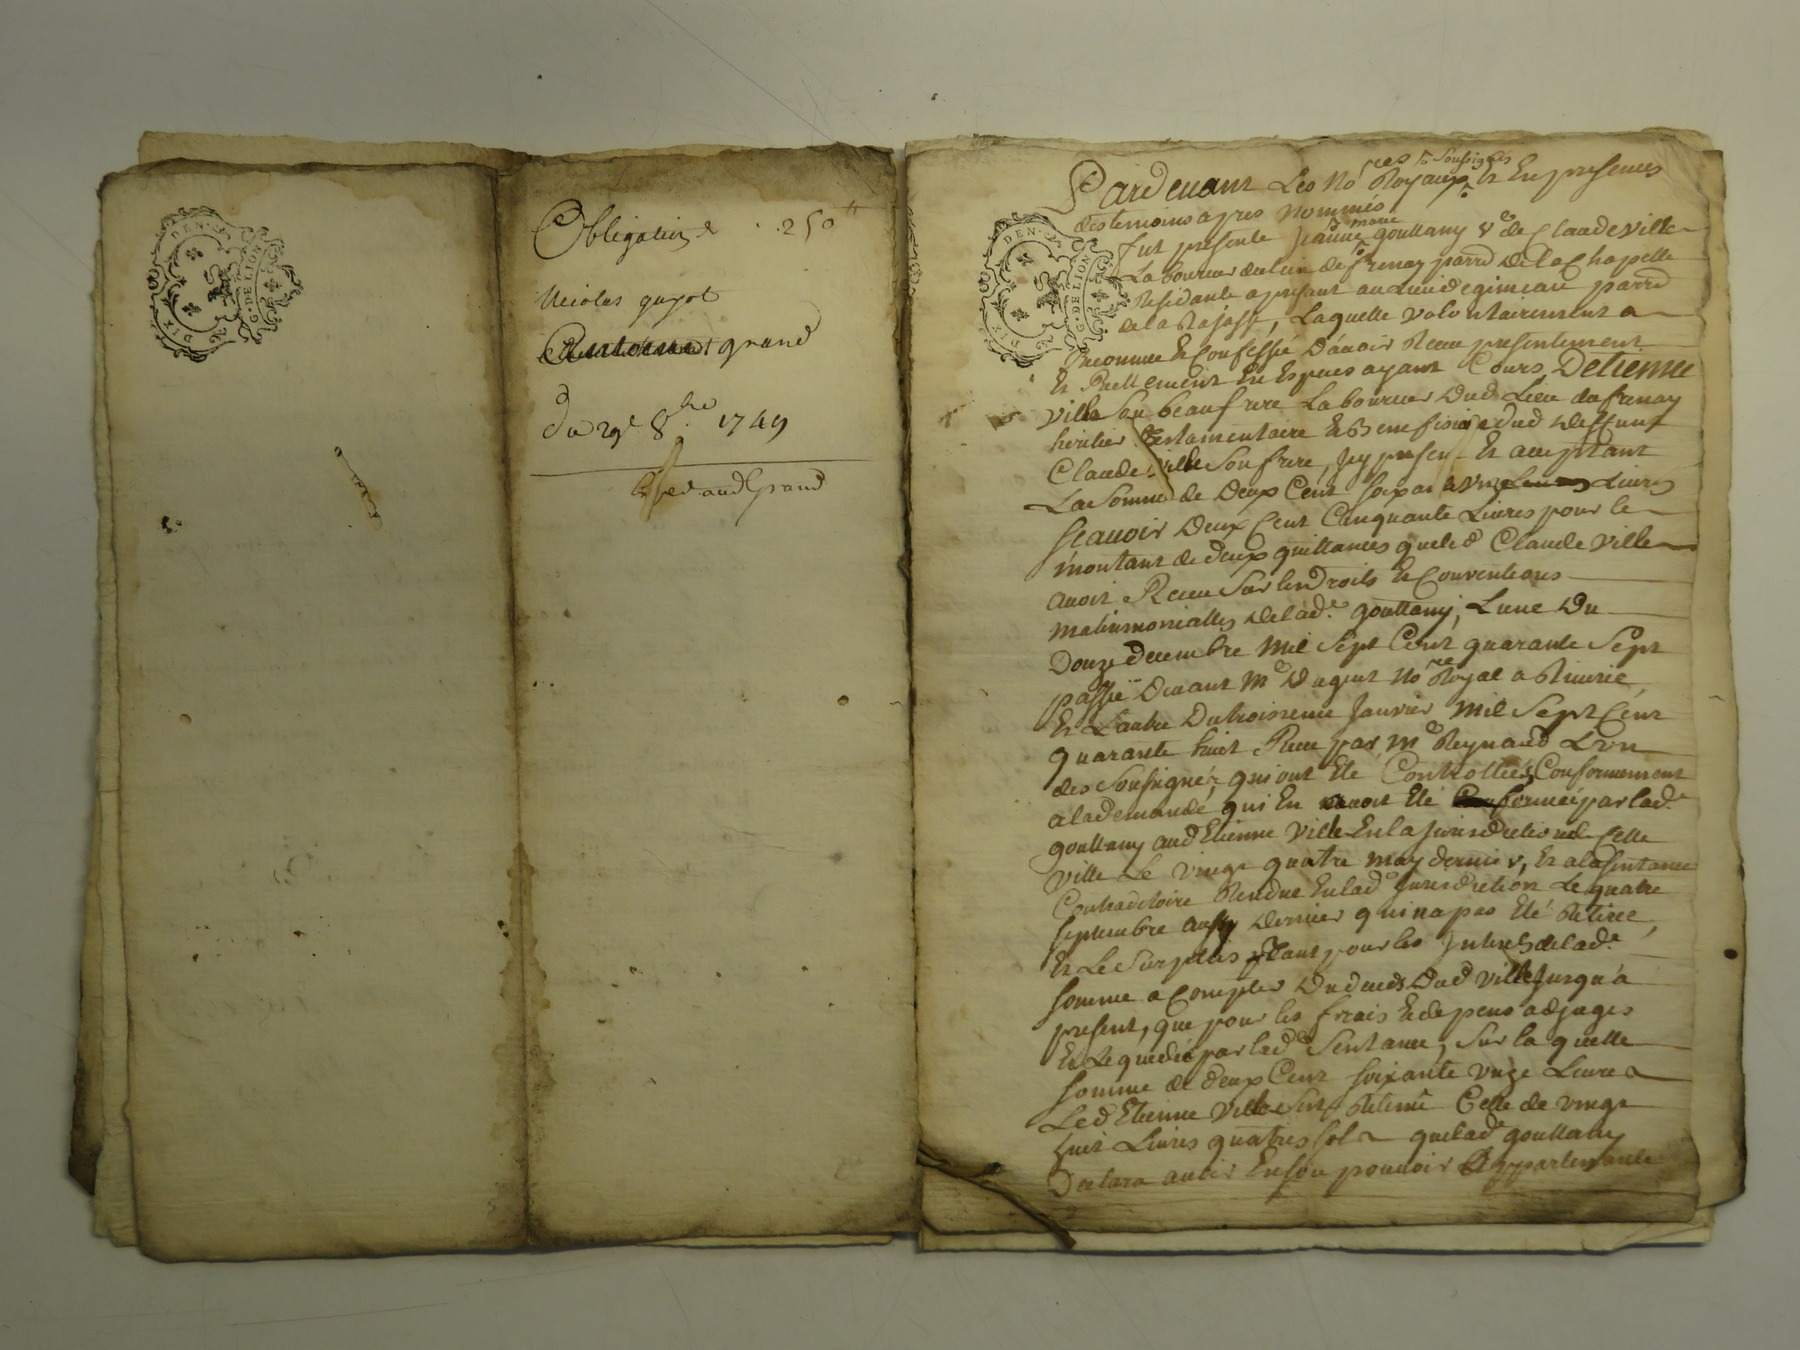 SIX DEN. G. DE LION
Obligation 250ᵗᵗ
Nicolas guyot
Antoine grand
Du 29ᵉ 8ᵇʳᵉ 1749
grand
SIX DEN. G. DE LION
Pardevant Les Noʳᵉˢ Royaux soussignés Et En presences
des temoins apres Nommés
fut presente Jeanne marie gouttany vᵉ de Claude ville
Laboureur du lieu de frenay parrᵉ De la Chapelle
Residante apresant au Lieu de gimeau parrᵉ
de la Rajasse, Laquelle volontairement a
Reconnue Et Confessé D'avoir Receu presentement
Et Reellement En Especes ayant Cours D'Etienne
ville Son beaufrere Laboureur Dud Lieu du frenay
heritier testamentaire Et Beneficiaire dud Deffunt
Claude ville Son frere, Jcy present Et acceptant
La Somme de Deux Cent soixante unze Livres
Scavoir Deux Cent Cinquante Livres pour le
montant de deux quittances que led Claude ville
avoit Receu Sur les Droits Et Conventions
matrimonialles de lad.ᵉ gouttany, L'une Du
Douze decembre Mil Sept Cent quarante Sept
passé Devant Mᵉ Dugent Noʳᵉ Royal a Riverié
Et L'autre Du troisieme Janvier Mil Sept Cent
quarante huit Receu par Mᵉ Reynaud L'vn
des Soussignés, qui ont Eté Controllées, Conformement
a la demande qui En avoit Eté formée par lad.ᵉ
gouttany aud Etienne ville En la Jurisdiction de Cette
ville Le vingt quatre may dernier, Et a la sentance
Contradictoire Rendue En lad.ᵉ Jurisdiction Le quatre
septembre aussy dernier qui na pas Eté Retirée,
Et Le Surplus tant pour les Jnterets de lad.ᵉ
somme a Compter Du deces Dud ville Jusqu'a
present, que pour les fraix Et depens adjugés
Et Liquidés par lad.ᵉ Sentance, Sur la quelle
somme de deux Cent soixante vnze Livres
Led Etienne ville Retenu Celle de vingt
huit Livres quatre sols que lad.ᵉ gouttany
Declara avoir En son pouvoir Appartenante